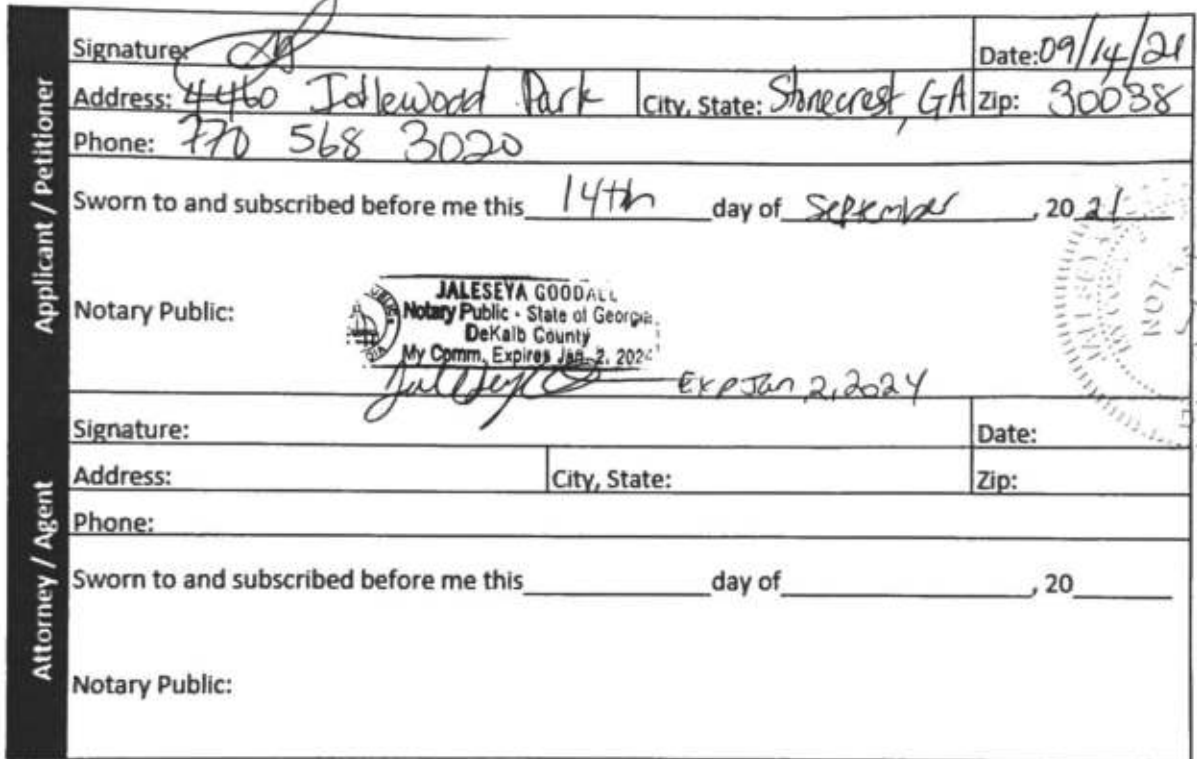 Applicant / Petitioner
Signature: Date: 09/14/21
Address: 4460 Idlewood Park City, State: Stonecrest, GA Zip: 30038
Phone: 770 568 3020
Sworn to and subscribed before me this 14th day of September, 20 21
Notary Public:
JALESEYA GOODALL
Notary Public - State of Georgia
DeKalb County
My Comm. Expires Jan. 2, 2024
Exp Jan 2, 2024
Attorney / Agent
Signature: Date:
Address: City, State: Zip:
Phone:
Sworn to and subscribed before me this day of , 20
Notary Public: